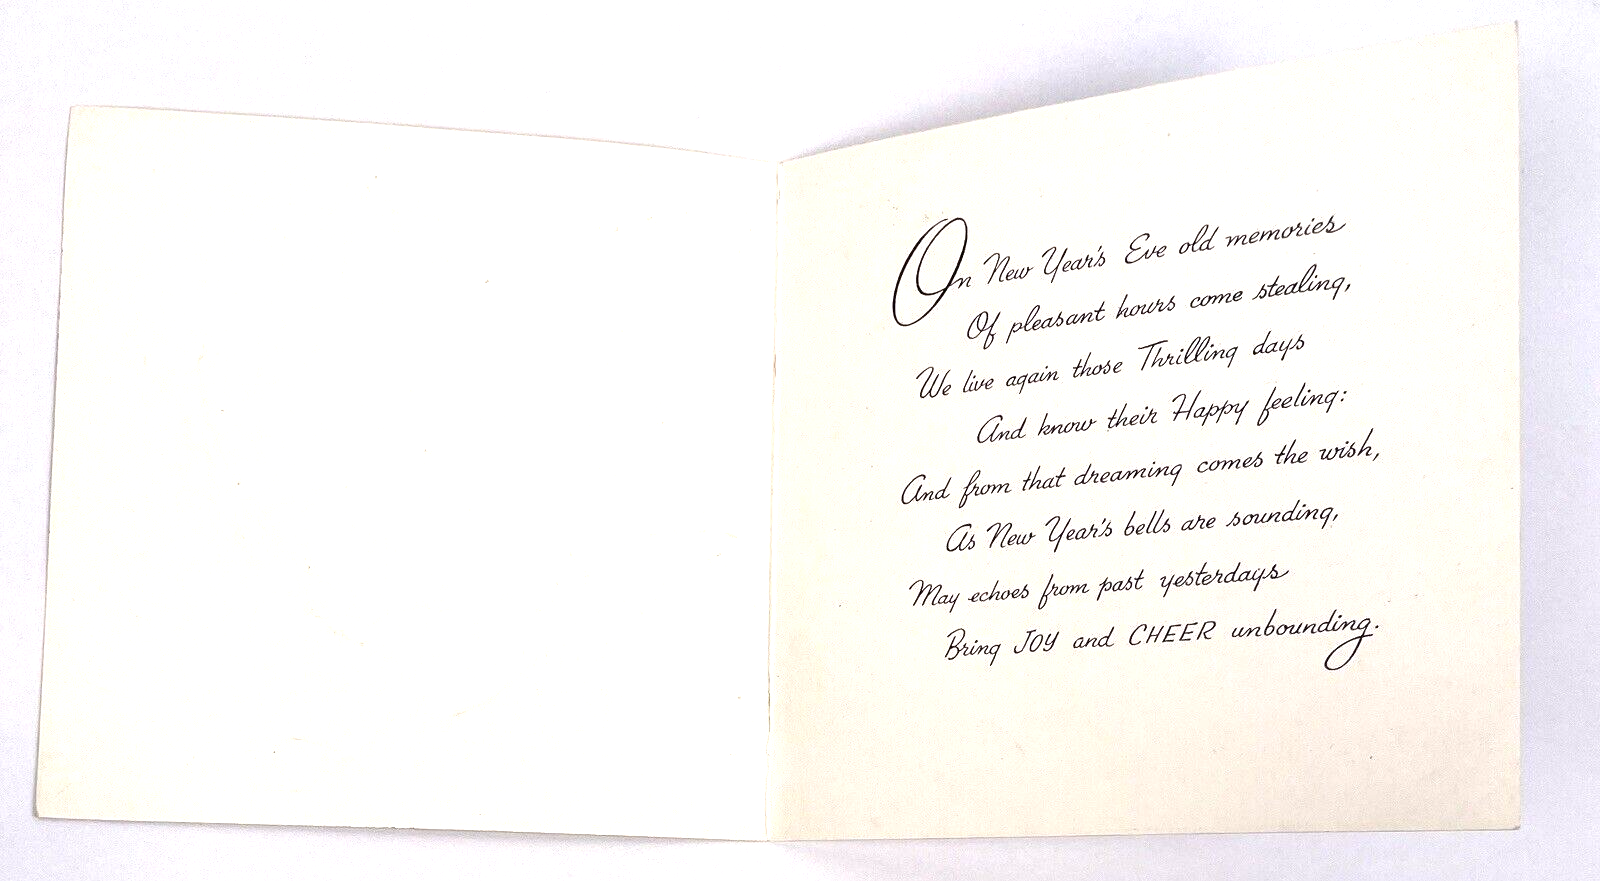 On New Year's Eve old memories
Of pleasant hours come stealing,
We live again those Thrilling days
And know their Happy feeling:
And from that dreaming comes the wish,
As New Year's bells are sounding,
May echoes from past yesterdays
Bring JOY and CHEER unbounding.